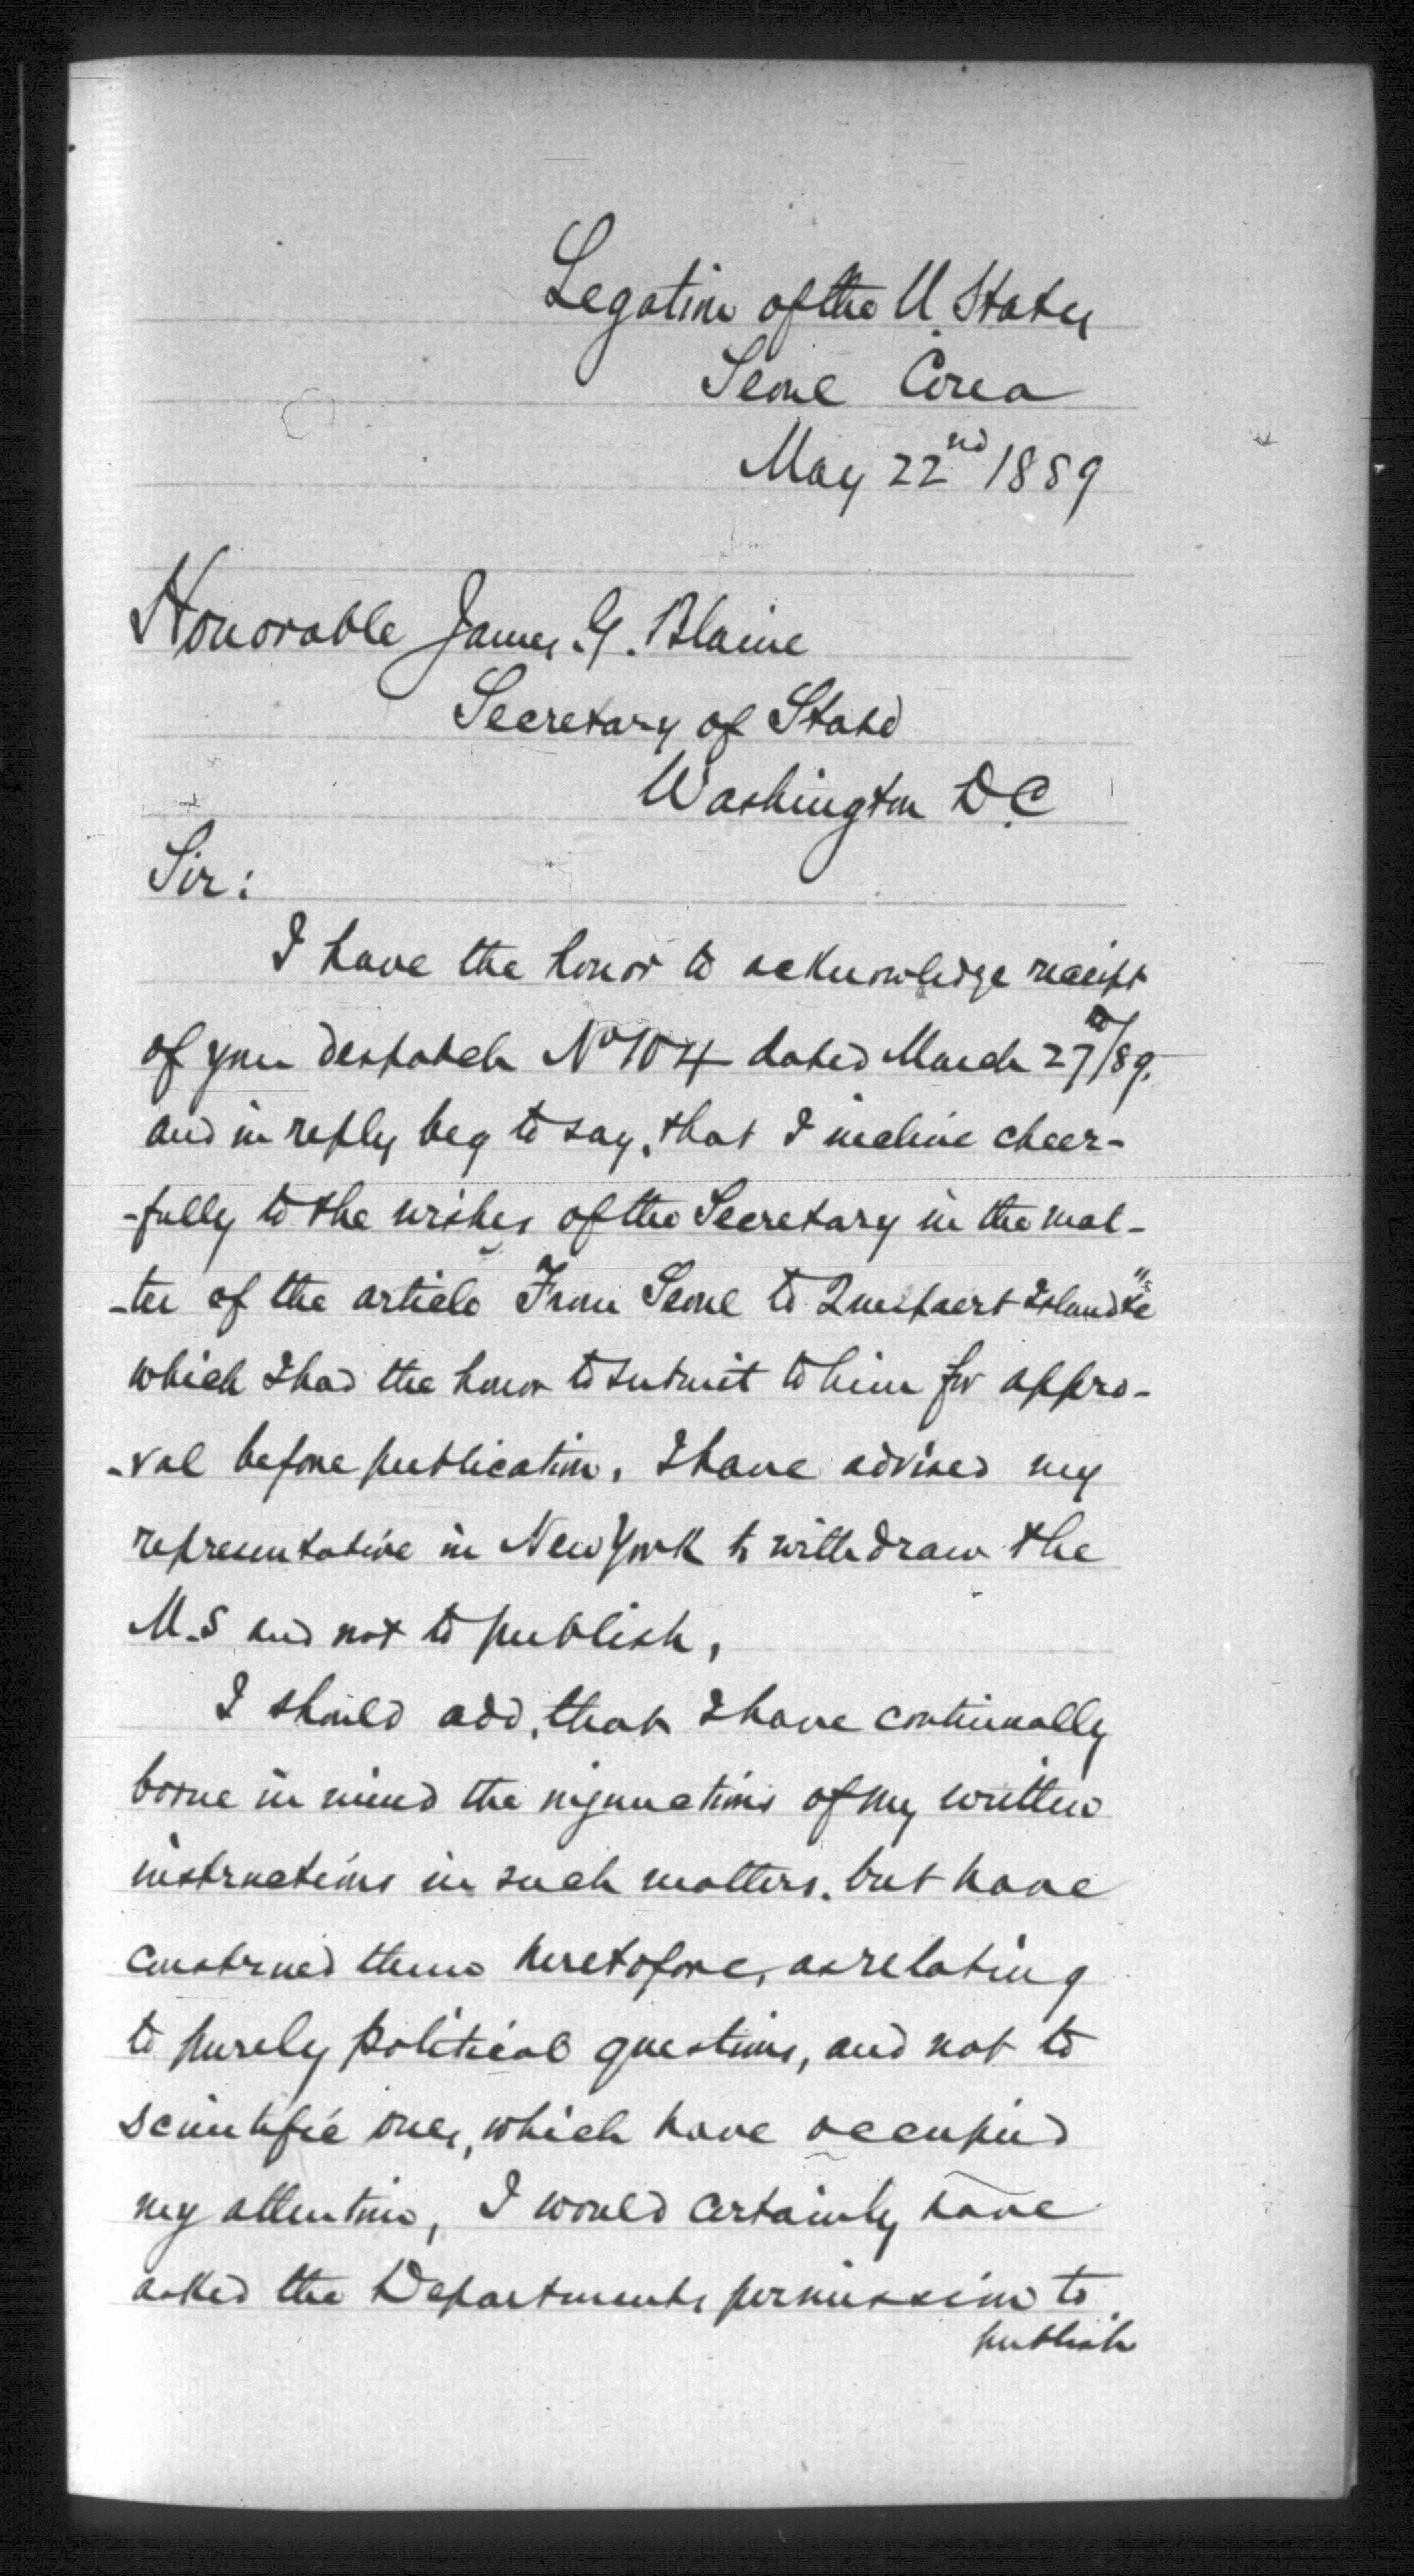 Legation of the U. States
Seoul Corea
May 22nd 1889
Honorable James G. Blaine
Secretary of State
Washington D.C
Sir:
I have the honor to acknowledge receipt
of your despatch No 104 dated March 27/89.
and in reply beg to say, that I incline cheer-
-fully to the wishes of the Secretary in the mat-
-ter of the article From Seoul to Quelpaert Island"
which I had the honor to submit to him for appro-
-val before publication. I have advised my
representative in New York to withdraw the
M.S and not to publish,
I should add, that I have continually
borne in mind the injunctions of my written
instructions in such matters. but have
construed them heretofore, as relating
to purely political questions, and not to
scientific ones, which have occupied
my attention, I would certainly have
asked the Departments permission to
publish